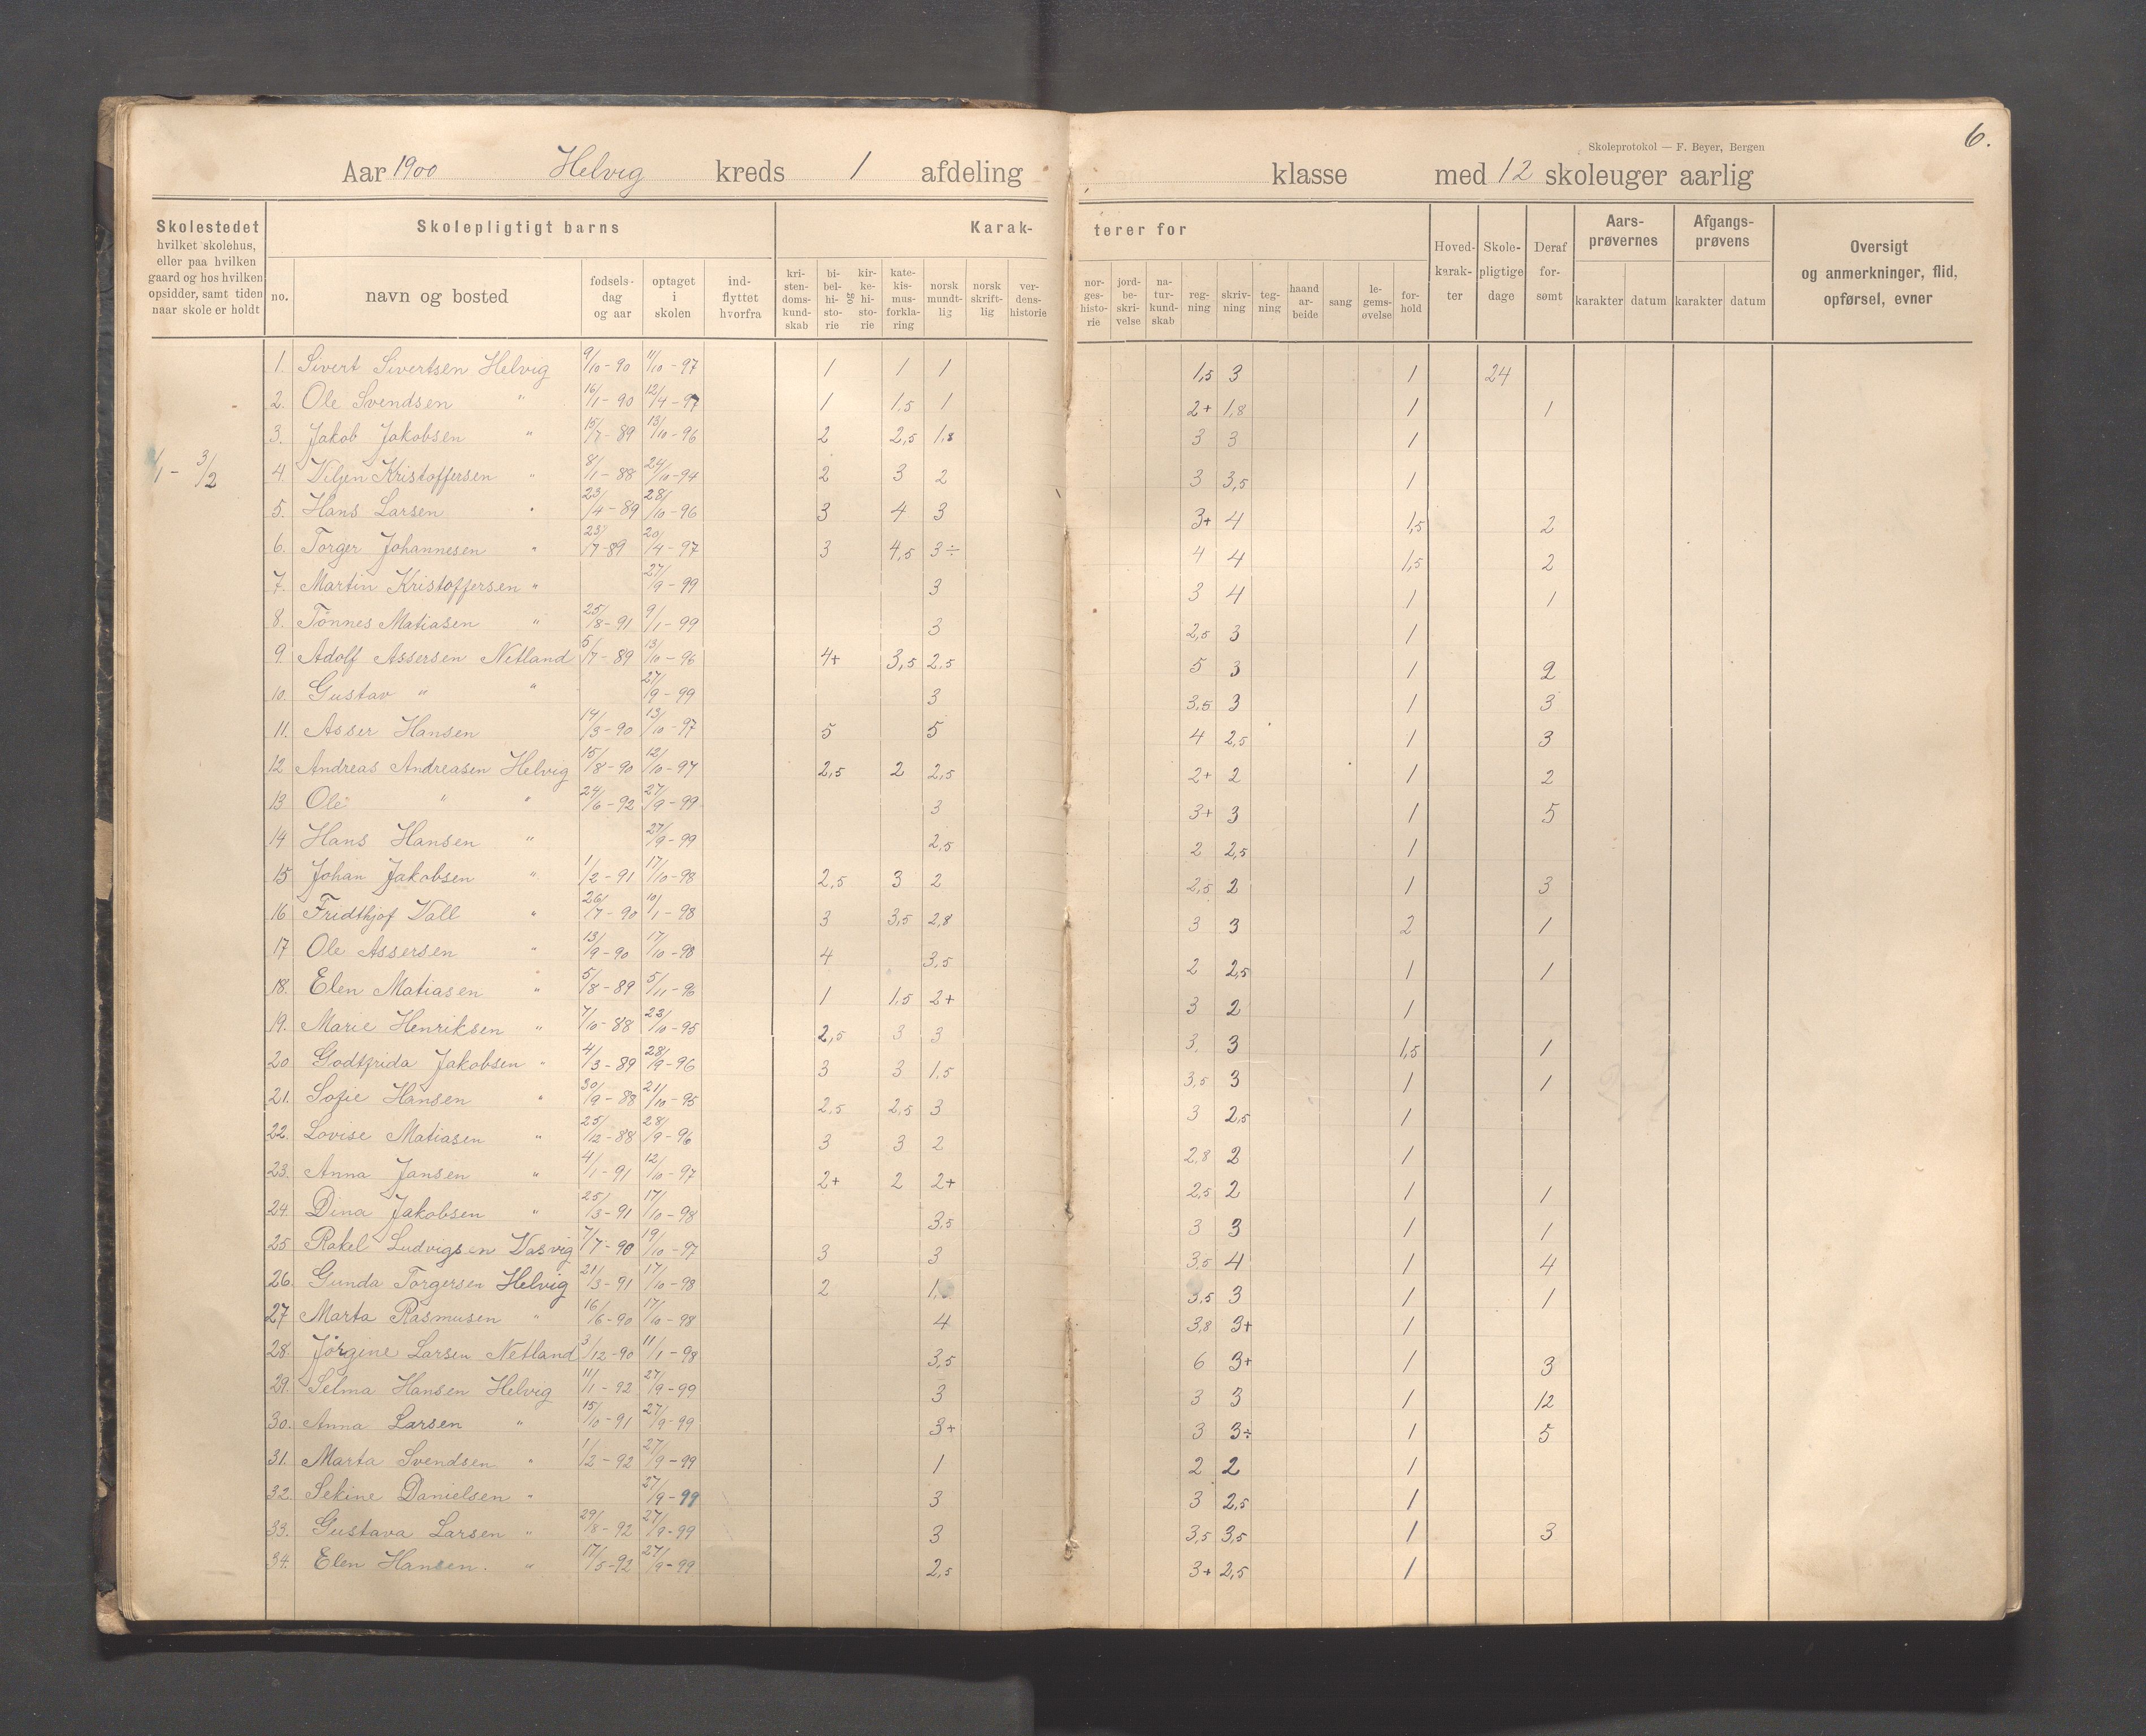 Skoleprotokol — F. Beyer, Bergen
6.
Aar 1900 Helvig kreds 1 afdeling klasse med 12 skoleuger aarlig
Skolestedet hvilket skolehus, eller paa hvilken gaard og hos hvilken opsidder, samt tiden naar skole er holdt
Skolepligtigt barns
Karakterer for
no. navn og bosted fødselsdag og aar optaget i skolen indflyttet hvorfra kristendomskundskab bibelhistorie og kirkehistorie katekismusforklaring norsk mundtlig norsk skriftlig verdenshistorie norgeshistorie jordbeskrivelse naturkundskab regning skrivning tegning haandarbeide sang legemsøvelse forhold
Hovedkarakter Skolepligtige dage Deraf forsømt Aarsprøvernes karakter datum Afgangsprøvens karakter datum Oversigt og anmerkninger, flid, opførsel, evner
1. Sivert Sivertsen Helvig 9/10-90 11/10-97 1 1 1 1,5 3 1 24
2. Ole Svendsen " 16/1-90 12/4-97 1 1,5 1 2+ 1,8 1 1
3. Jakob Jakobsen " 15/7-89 13/10-96 2 2,5 1,8 3 3 1
1/1 - 3/2
4. Viljen Kristoffersen " 8/1-88 24/10-94 2 3 2 3 3,5 1
5. Hans Larsen " 23/4-89 28/10-96 3 4 3 3+ 4 1,5 2
6. Torger Johannesen " 23/7-89 20/4-97 3 4,5 3÷ 4 4 1,5 2
7. Martin Kristoffersen " 27/9-99 3 3 4 1 1
8. Tönnes Matiasen " 25/8-91 9/1-99 3 2,5 3 1
9. Adolf Assersen Netland 5/7-89 13/10-96 4+ 3,5 2,5 5 3 1 2
10. Gustav " " 27/9-99 3 3,5 3 1 3
11. Asser Hansen 14/3-90 13/10-97 5 5 4 2,5 1 3
12 Andreas Andreasen Helvig 15/8-90 12/10-97 2,5 2 2,5 2+ 2 1 2
13 Ole " " 24/6-92 27/9-99 3 3+ 3 1 5
14 Hans Hansen " 27/9-99 2,5 2 2,5 1
15 Johan Jakobsen " 1/2-91 17/10-98 2,5 3 2 2,5 2 1 3
16 Fridthjof Vall " 26/7-90 10/1-98 3 3,5 2,8 3 3 2 1
17 Ole Assersen " 13/9-90 17/10-98 4 3,5 2 2,5 1 1
18. Elen Matiasen " 5/8-89 5/11-96 1 1,5 2+ 3 2 1
19. Marie Henriksen " 7/10-88 23/10-95 2,5 3 3 3 3 1,5 1
20 Godtfrida Jakobsen " 4/3-89 28/9-96 3 3 1,5 3,5 3 1 1
21. Sofie Hansen " 30/9-88 21/10-95 2,5 2,5 3 3 2,5 1
22. Lovise Matiasen " 25/12-88 28/9-96 3 3 2 2,8 2 1
23. Anna Jansen " 4/1-91 12/10-97 2+ 2 2+ 2,5 2 1 1
24. Dina Jakobsen " 25/3-91 17/10-98 3,5 3 3 1 1
25 Rakel Ludvigsen Vasvig 7/7-90 19/10-97 3 3 3,5 4 1 4
26. Gunda Torgersen Helvig 21/3-91 17/10-98 2 1, 3,5 3 1 1
27 Marta Rasmusen " 16/6-90 17/10-98 4 3,8 3+ 1
28. Jörgine Larsen Netland 3/12-90 11/1-98 3,5 6 3+ 1 3
29. Selma Hansen Helvig 11/1-92 27/9-99 3 3 3 1 12
30. Anna Larsen " 15/10-91 27/9-99 3+ 3 3÷ 1 5
31. Marta Svendsen " 1/2-92 27/9-99 1 2 2 1
32. Sekine Danielsen " 27/9-99 3 3 2,5 1
33. Gustava Larsen " 29/8-92 27/9-99 3 3,5 3,5 1 3
34. Elen Hansen. " 17/5-92 27/9-99 2,5 3+ 2,5 1